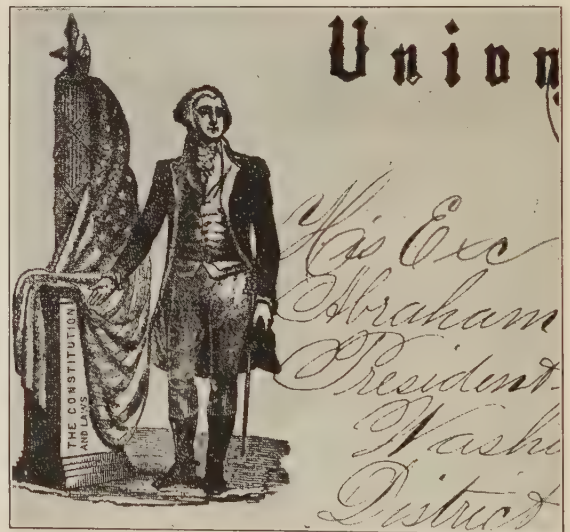 Union
THE CONSTITUTION
AND LAWS
His Exc
Abraham
President
Washi
District